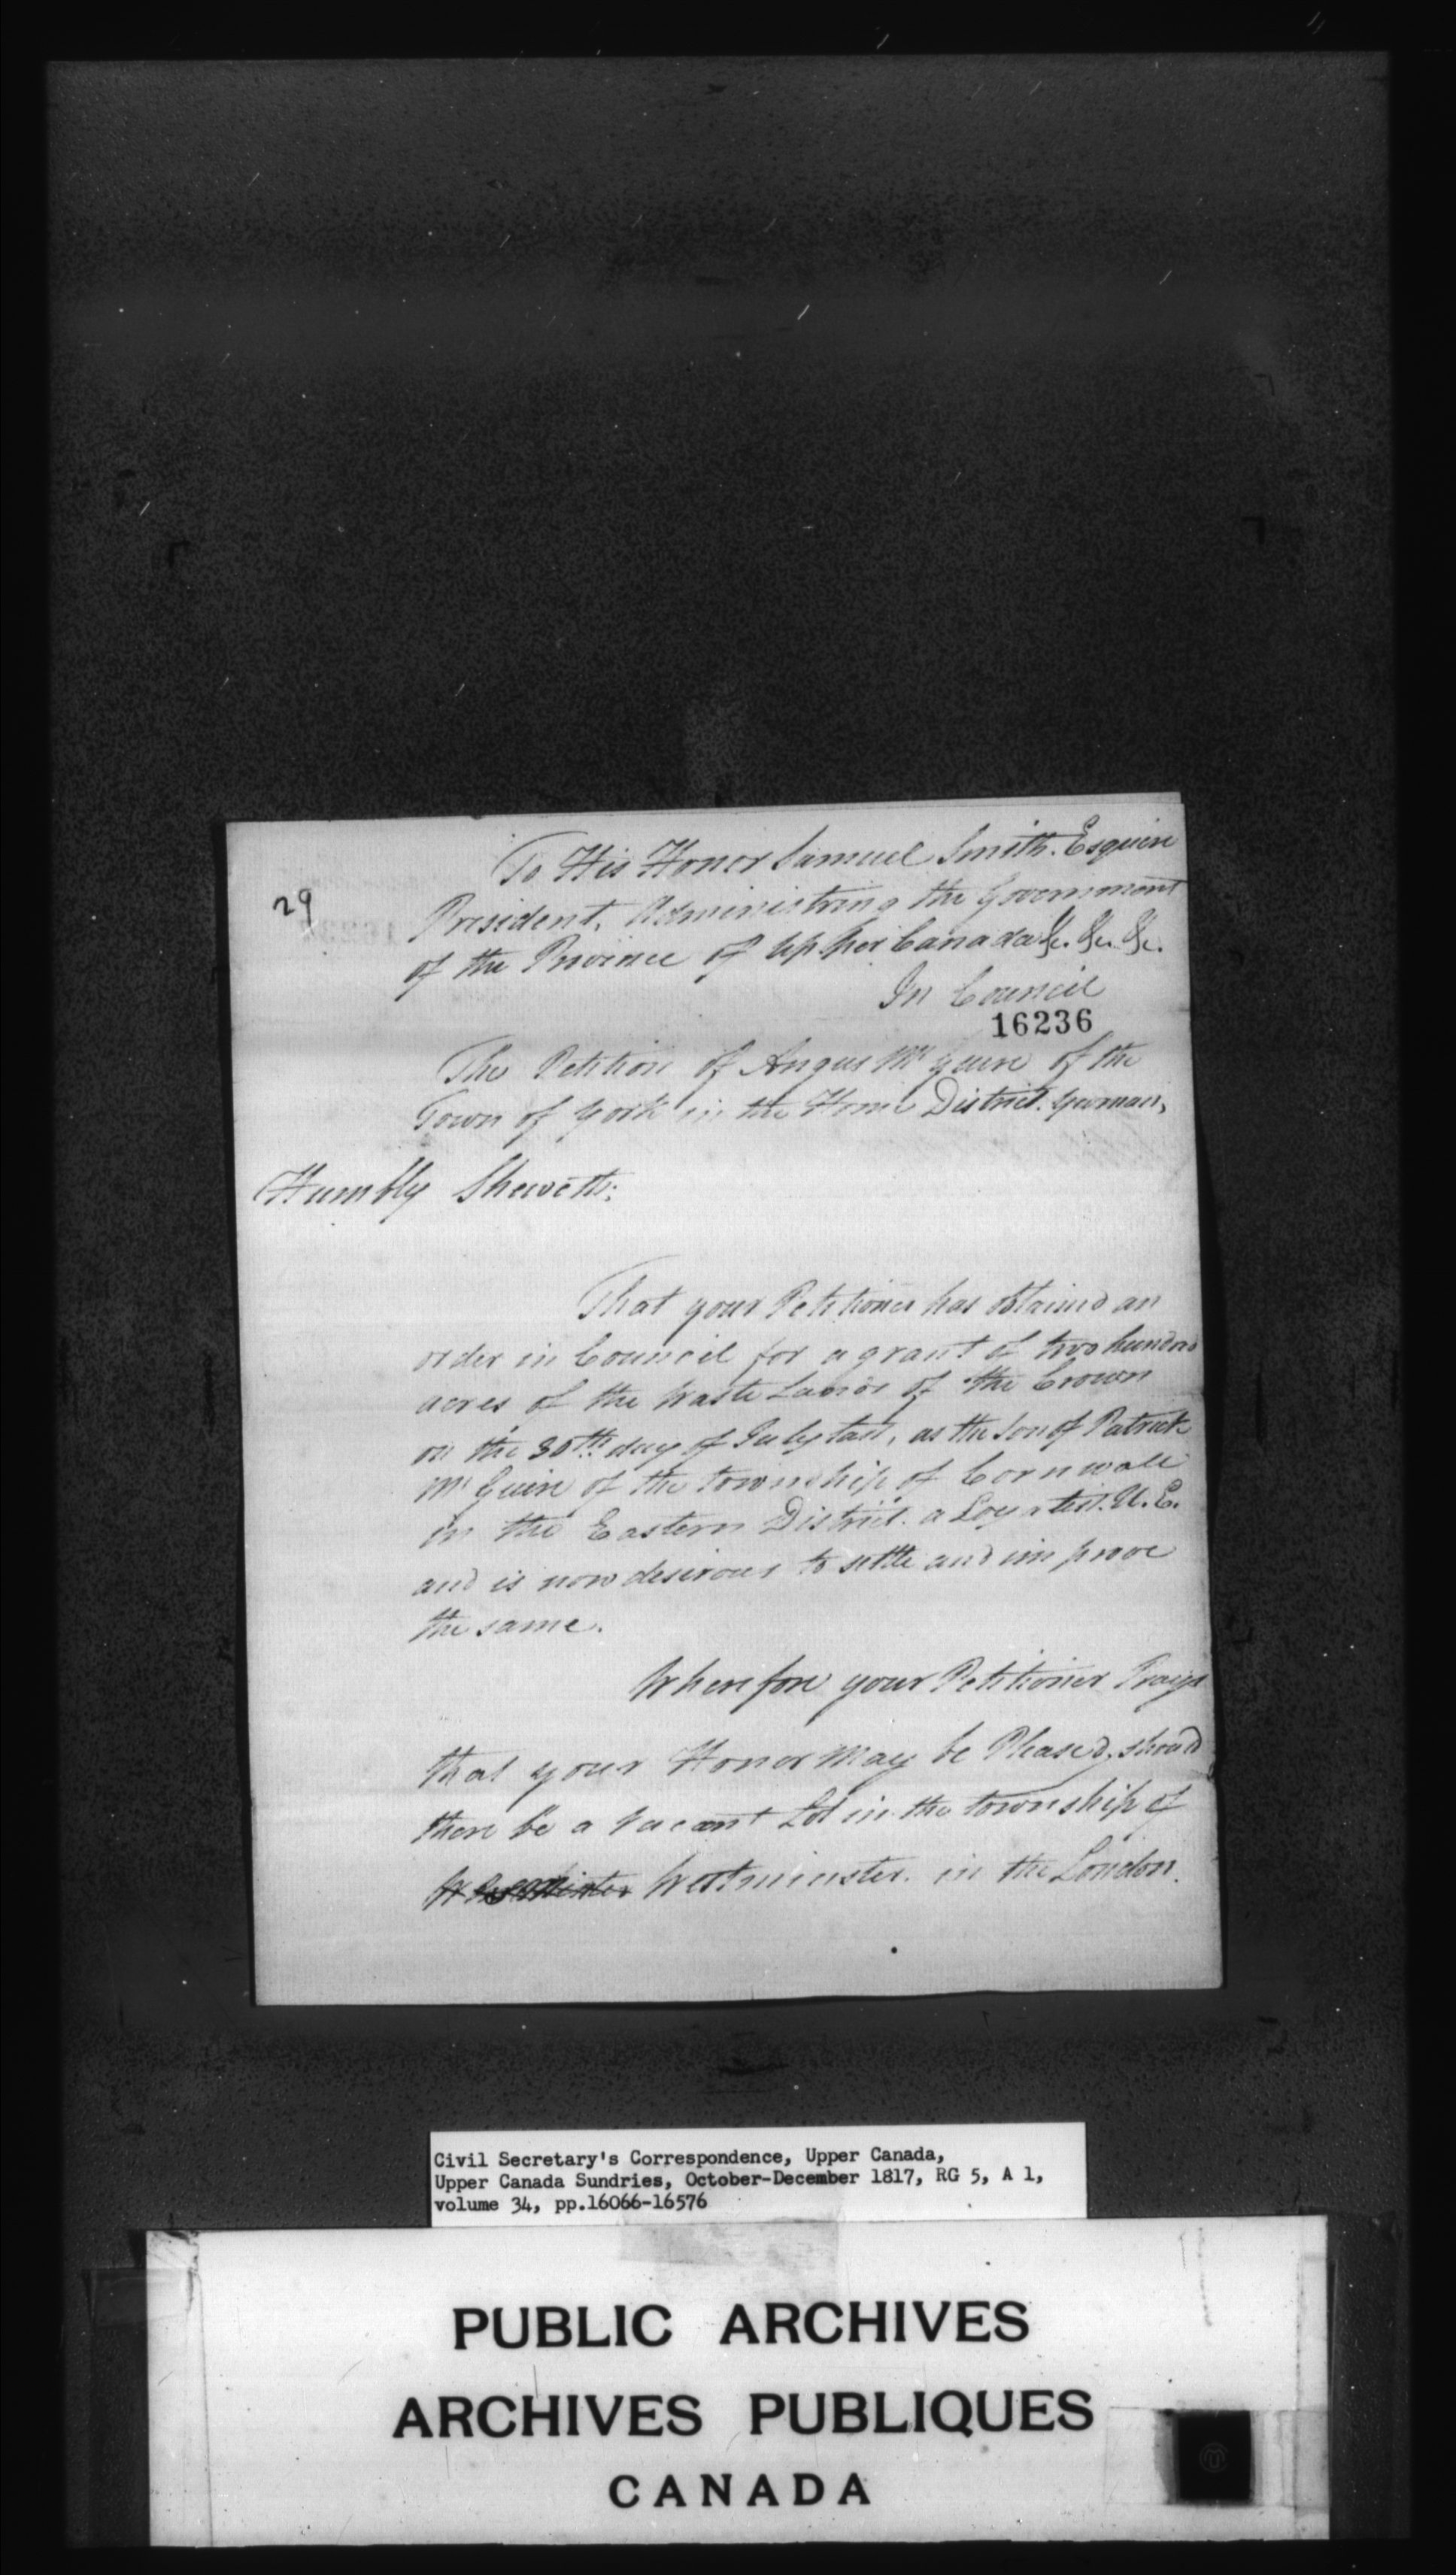 To His Honor Samuel Smith. Esquire
29
President, Administring the Government
of the Province of Upper Canada &c. &c. &c.
In Council
16236
The Petition of Angus Mc Guire of the
Town of York in the Home District. Yeoman,
Humbly Sheweth:
That your Petitioner has obtained an
order in Council for a grant of two hundred
acres of the Waste Lands of the Crown
on the 30th day of July last, as the Son of Patrick
Mc Guire of the township of Cornwall
in the Eastern District. a Loyalist. U. E.
and is now desirous to settle and improve
the same.
Wherefore your Petitioner Prays
that your Honor May be Pleased, should
there be a Vacant Lot in the township of
Westminster. in the London.
Civil Secretary's Correspondence, Upper Canada,
Upper Canada Sundries, October-December 1817, RG 5, A 1,
volume 34, pp.16066-16576
PUBLIC ARCHIVES
ARCHIVES PUBLIQUES
CANADA